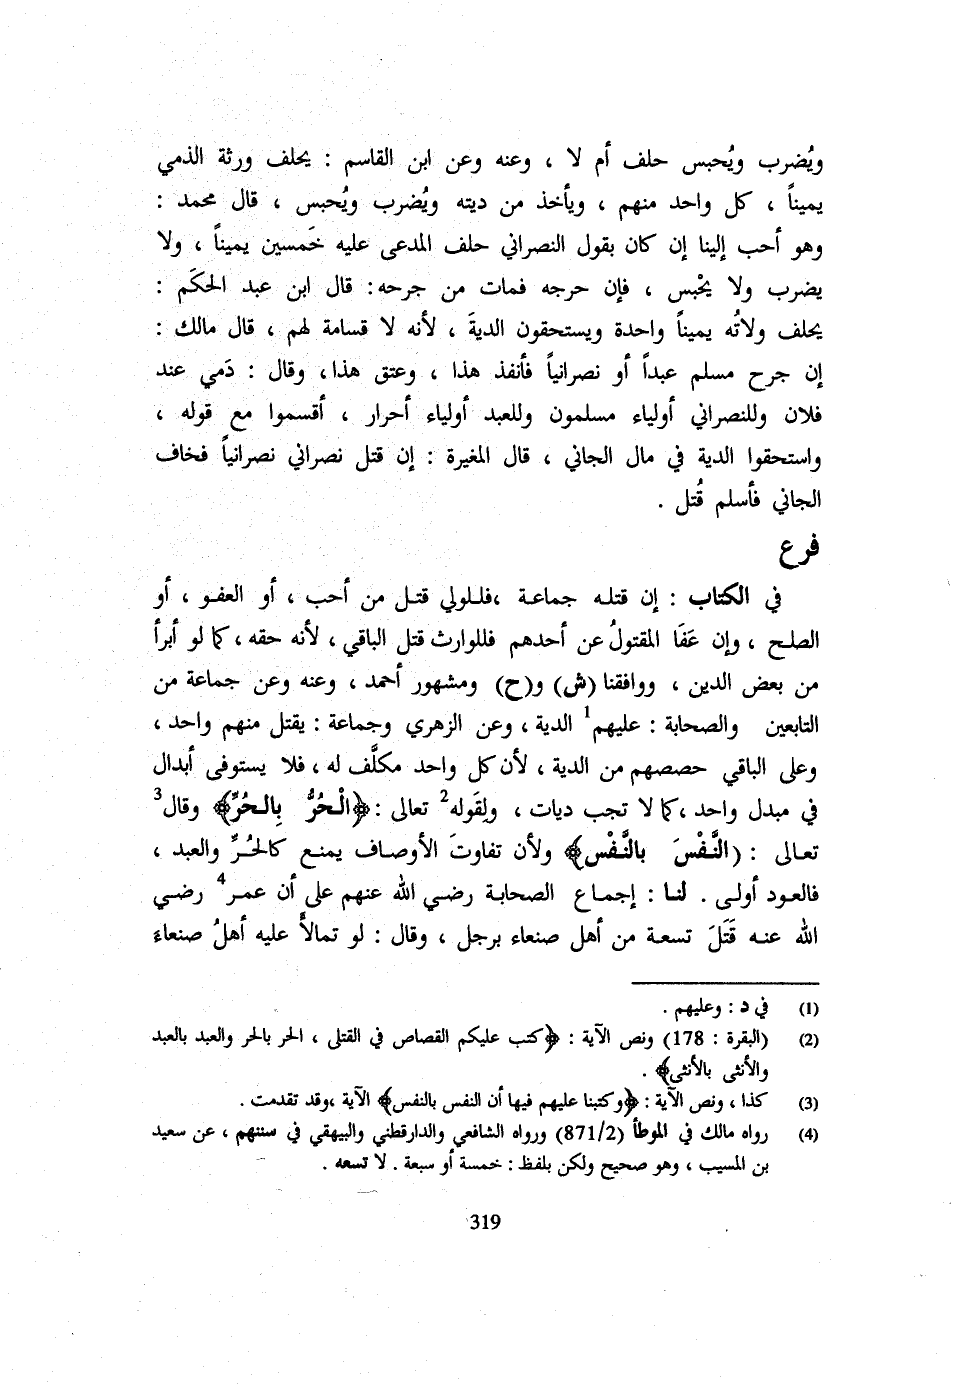 ويُضرب ويُحبس حلف أم لا ، وعنه وعن ابن القاسم : يحلف ورثة الذمي
يميناً ، كل واحد منهم ، ويأخذ من ديته ويُضرب ويُحبس ، قال محمد :
وهو أحب إلينا إن كان بقول النصراني حلف المدعى عليه خَمسين يميناً ، ولا
يضرب ولا يحْبس ، فإن حرجه فمات من جرحه : قال ابن عبد الحكَم :
يحلف ولاتُه يميناً واحدة ويستحقون الديةَ ، لأنه لا قسامة لهم ، قال مالك :
إن جرح مسلم عبداً أو نصرانياً فأنفذ هذا ، وعتق هذا ، وقال : دَمي عند
فلان وللنصراني أولياء مسلمون وللعبد أولياء أحرار ، أقسموا مع قوله ،
واستحقوا الدية في مال الجاني ، قال المغيرة : إن قتل نصراني نصرانياً فخاف
الجاني فأسلم قُتل .
فرع
في الكتاب : إن قتله جماعة ،فللولي قتل من أحب ، أو العفو ، أو
الصلح ، وإن عَفَا المقتولُ عن أحدهم فللوارث قتل الباقي ، لأنه حقه ، كما لو أبرأ
من بعض الدين ، ووافقنا (ش) و(ح) ومشهور أحمد ، وعنه وعن جماعة من
التابعين والصحابة : عليهم1 الدية ، وعن الزهري وجماعة : يقتل منهم واحد ،
وعلى الباقي حصصهم من الدية ، لأن كل واحد مكلَّف له ، فلا يستوفى أبدال
في مبدل واحد ،كما لا تجب ديات ، ولِقَوله2 تعالى : ﴿الْحُرُّ بِالحُرِّ﴾ وقال3
تعالى : (النَّفْسَ بالنَّفْس﴾ ولأن تفاوتَ الأوصاف يمنع كالحُرِّ والعبد ،
فالعود أولى . لنا : إجماع الصحابة رضي الله عنهم على أن عمر4 رضي
الله عنه قَتَلَ تسعة من أهل صنعاء برجل ، وقال : لو تمالأَ عليه أهلُ صنعاءَ
(1) في د : وعليهم .
(2) (البقرة : 178) ونص الآية : ﴿كتب عليكم القصاص في القتلى ، الحر بالحر والعبد بالعبد
والأنثى بالأنثى﴾ .
(3) كذا ، ونص الآية : ﴿وكتبنا عليهم فيها أن النفس بالنفس﴾ الآية ،وقد تقدمت .
(4) رواه مالك في الموطأ (871/2) ورواه الشافعي والدارقطني والبيهقي في سننهم ، عن سعيد
بن المسيب ، وهو صحيح ولكن بلفظ : خمسة أو سبعة . لا تسعه .
319